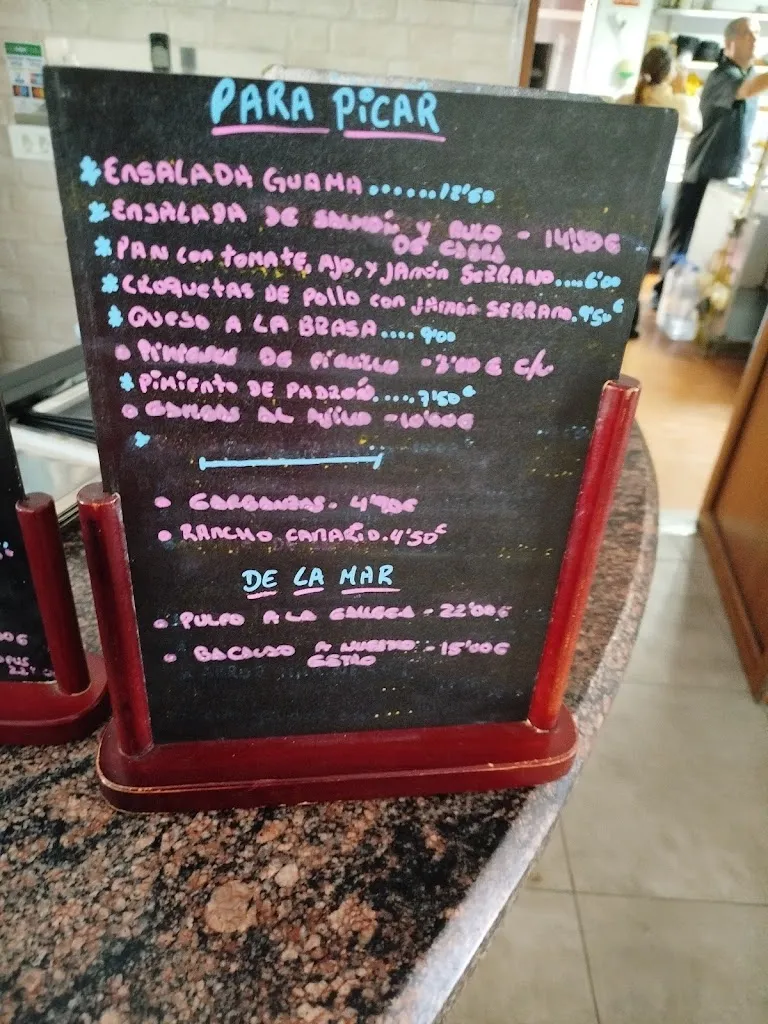 PARA PICAR
* ENSALADA GUAMA.......12'50
* ENSALADA DE SALMÓN Y RULO - 14'50€
DE CABRA
* PAN CON TOMATE, AJO, Y JAMÓN SERRANO....6'00
* CROQUETAS DE POLLO CON JAMÓN SERRANO.9'50€
* QUESO A LA BRASA....9'00
• DE PIQUILLO - 3'00€ C/U
* PIMIENTO DE PADRÓN....7'50€
• GAMBAS AL AJILLO - 10'00€
*
• GARBANZAS. 4'90€
• RANCHO CANARIO.4'50€
DE LA MAR
• PULPO A LA GALLEGA - 22'00€
• BACALAO A NUESTRO - 15'00€
ESTILO